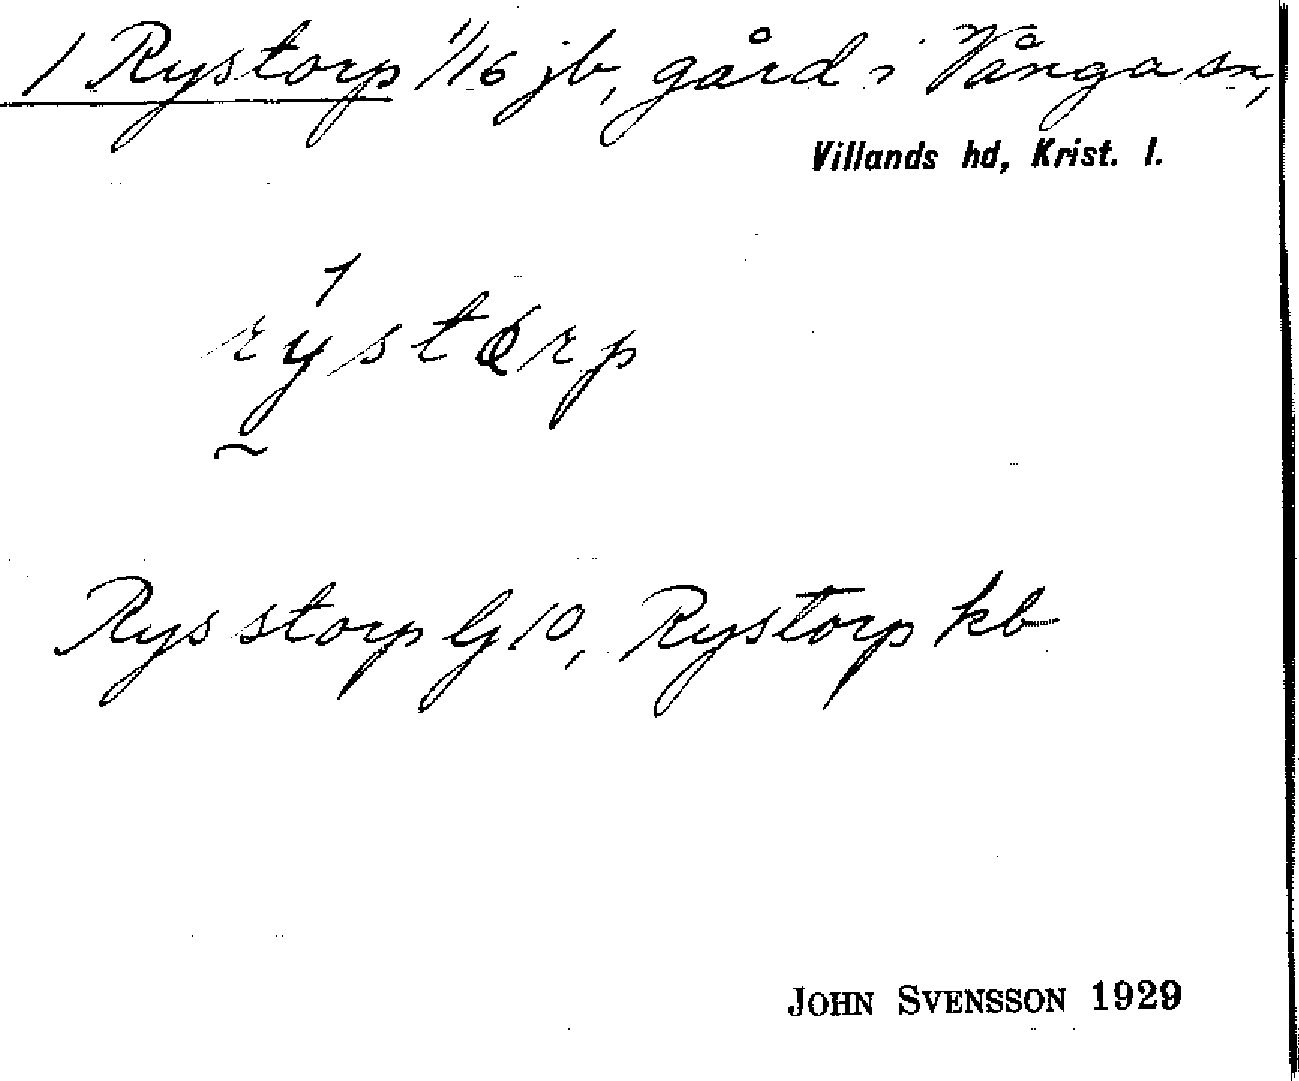 1 Rystorp 1/16 jb, gård i Vånga sn,
Villands hd, Krist. l.
rýstǫrp
Rysstorp Gj 10, Rystorp kb
JOHN SVENSSON 1929